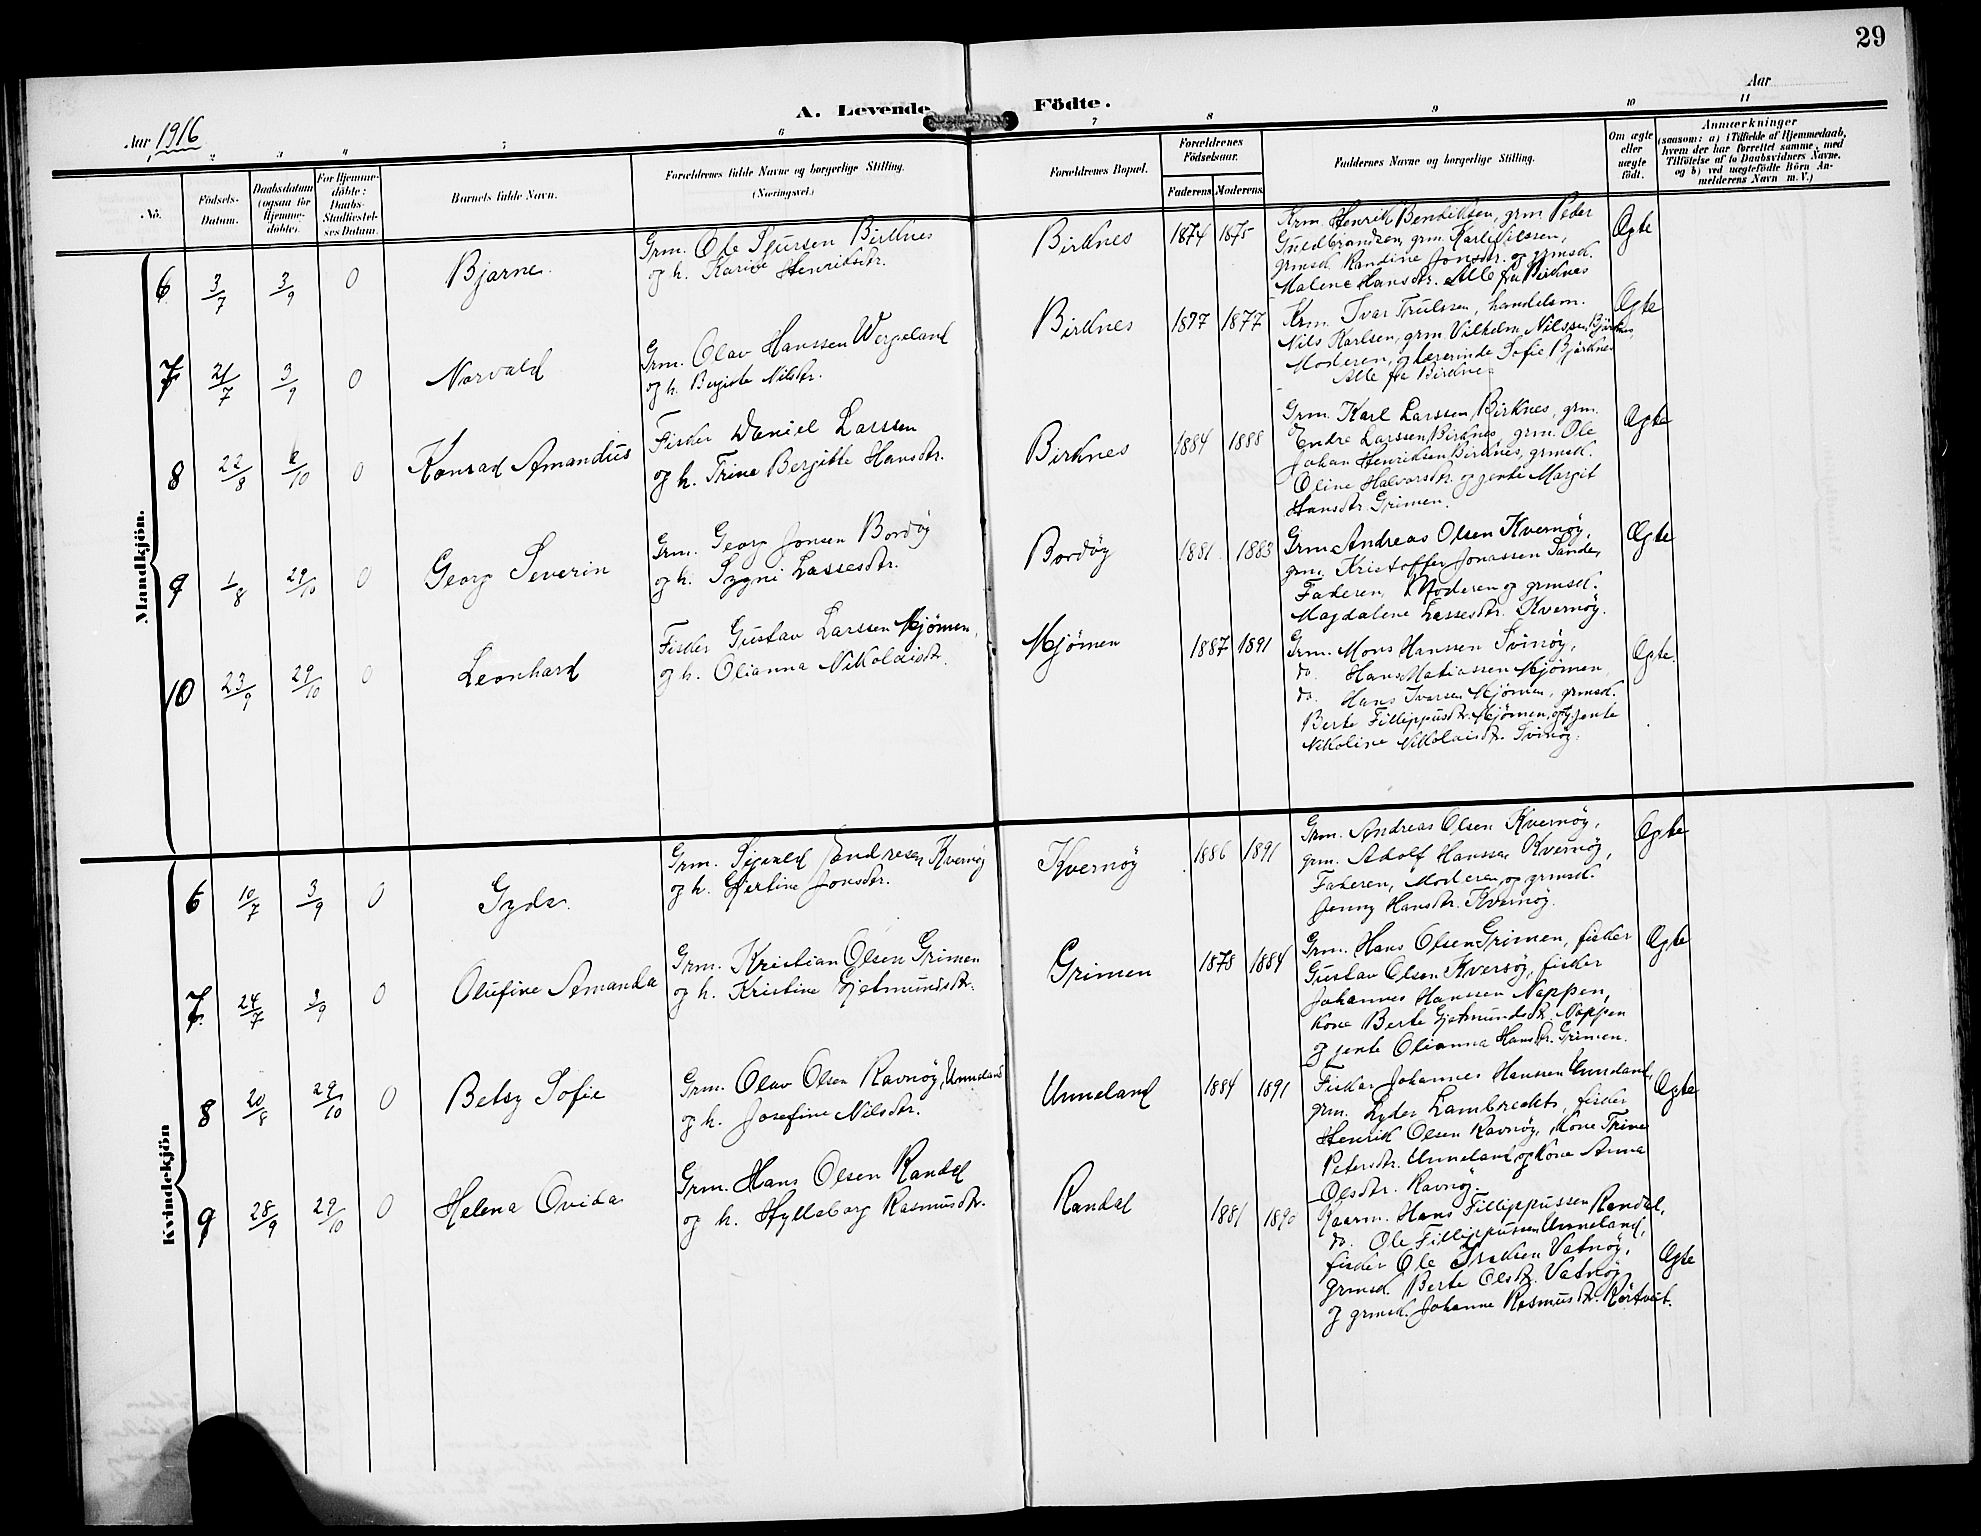 29
Aar
Aar 1916
A. Levende Födte.
2 3 4 5 6 7 8 9 10 11
No.
Födsels-
Datum.
Daabsdatum
(ogsaa for
Hjemme-
döbte).
For Hjemme-
döbte:
Daabs-
Stadfæstel-
ses Datum.
Barnets fulde Navn.
Forældrenes fulde Navne og borgerlige Stilling.
(Næringsvei.)
Forældrenes Bopæl.
Forældrenes
Födselsaar.
Faderens Moderens
Faddernes Navne og borgerlige Stilling.
Om ægte
eller
uægte
födt.
Anmærkninger
(saasom: a) i Tilfælde af Hjemmedaab,
hvem der har forrettet samme, med
Tilföielse af to Daabsvidners Navne.
og b) ved uægtefödte Börn An-
melderens Navn m. V.)
Mandkjön.
6 3/7 3/9 0 Bjarne
Grm. Ole Sjursen Birknes
og h. Karine Henriksdtr.
Birknes 1874 1875
Krm. Henrik Bendiksen, grm. Peder
Guldbrandsen, grm. Karl Nilssen,
grmsk. Randine Jonsdtr. og grmsk.
Malene Hansdtr. Alle fra Birknes
Ægte
7 21/7 3/9 0 Norvald
Grm. Olav Hanssen Wergeland
og h. Bergite Nilsdtr.
Birknes 1877 1877
Krm. Ivar Trulssen, handelsm.
Nils Karlsen, grm. Vilhelm Nilssen Bjørknes,
Moderen, og lærerinde Sofie Bjørknes
Alle fra Birknes
Ægte
8 22/8 /10 0 Konrad Amandus
Fisker Daniel Larssen
og h. Trine Bergitte Hansdtr.
Birknes 1884 1888
Grm. Karl Larssen Birknes, grm.
Endre Larssen Birknes, grm. Ole
Johan Henriksen Birknes, grmsk.
Oline Halvorsdtr. og jente Margit
Hansdtr. Grimen.
Ægte
9 1/8 29/10 0 Georg Severin
Grm. Georg Jonsen Bordøy
og h. Sygni Lassesdtr.
Bordøy 1881 1883
Grm. Andreas Olsen Kvernøy,
grm. Kristoffer Jonassen Sande,
Faderen, Moderen og grmsk.
Magdalene Lassesdtr. Kvernøy.
Ægte
10 23/9 29/10 0 Leonhard
Fisker Gustav Larssen Mjømen,
og h. Olianna Nikolaisdtr.
Mjømen 1887 1891
Grm. Mons Hanssen Svinøy,
do. Hans Matiassen Mjømen,
do. Hans Ivarsen Mjømen, grmsk.
Berte Fillippusdtr. Mjømen, og jente
Nikoline Nikolaisdtr. Svinøy.
Ægte.
Kvindekjön
6 10/7 3/9 0 Gyda
Grm. Sigvald Andresen Kvernøy
og h. Gjertine Jonsdtr.
Kvernøy 1886 1891
Grm. Andreas Olsen Kvernøy,
grm. Adolf Hanssen Kvernøy,
Faderen, Moderen og grmsk.
Jenny Hansdtr. Kvernøy.
Ægte
7 24/7 3/9 0 Olufine Amanda
Grm. Kristian Olsen Grimen
og h. Kristine Gjetmundsdtr.
Grimen 1878 1884
Grm. Hans Olsen Grimen, fisker
Gustav Olsen Kversøy, fisker
Johannes Hanssen Nappen,
kone Berte Gjetmundsdtr. Nappen
og jente Olianna Hansdtr. Grimen.
Ægte
8 20/8 29/10 0 Betsy Sofie
Grm. Olav Olsen Ravnøy, Unneland
og h. Josefine Nilsdtr.
Unneland 1884 1891
Fisker Johannes Hanssen Unneland,
grm. Lyder Lambrechts, fisker
Henrik Olsen Ravnøy, kone Trine
Petersdtr. Unneland og kone Anna
Olsdtr. Ravnøy.
Ægte
9 28/9 29/10 0 Helena Ovida
Grm. Hans Olsen Randal
og h. Hylleborg Rasmusdtr.
Randal 1881 1890
Kaarm. Hans Fillippussen Randal,
do. Ole Fillippussen Unneland,
fisker Ole Isaksen Vatnøy,
grmsk. Berte Olsdtr. Vatnøy
og grmsk. Johanne Rasmusdtr. Rørtveit.
Ægte